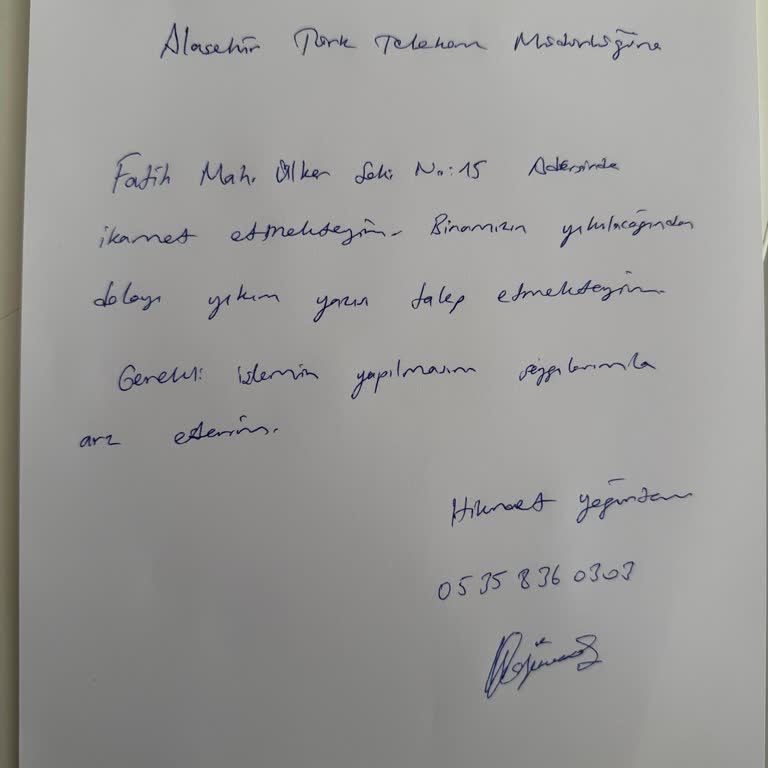 Alaşehir Türk Telekom Müdürlüğüne
Fatih Mah. Ülker Sok. No:15 Adresinde
ikamet etmekteyim. Binamızın yıkılacağından
dolayı yıkım yazısı talep etmekteyim.
Gerekli işlemin yapılmasını saygılarımla
arz ederim.
Hikmet
0535 836 0303